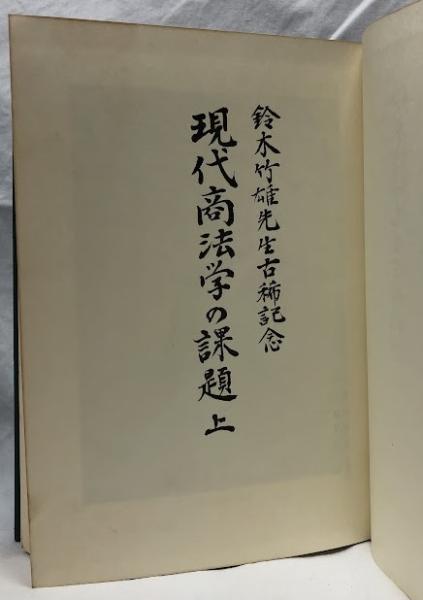 鈴木竹雄先生古稀記念
現代商法学の課題 上